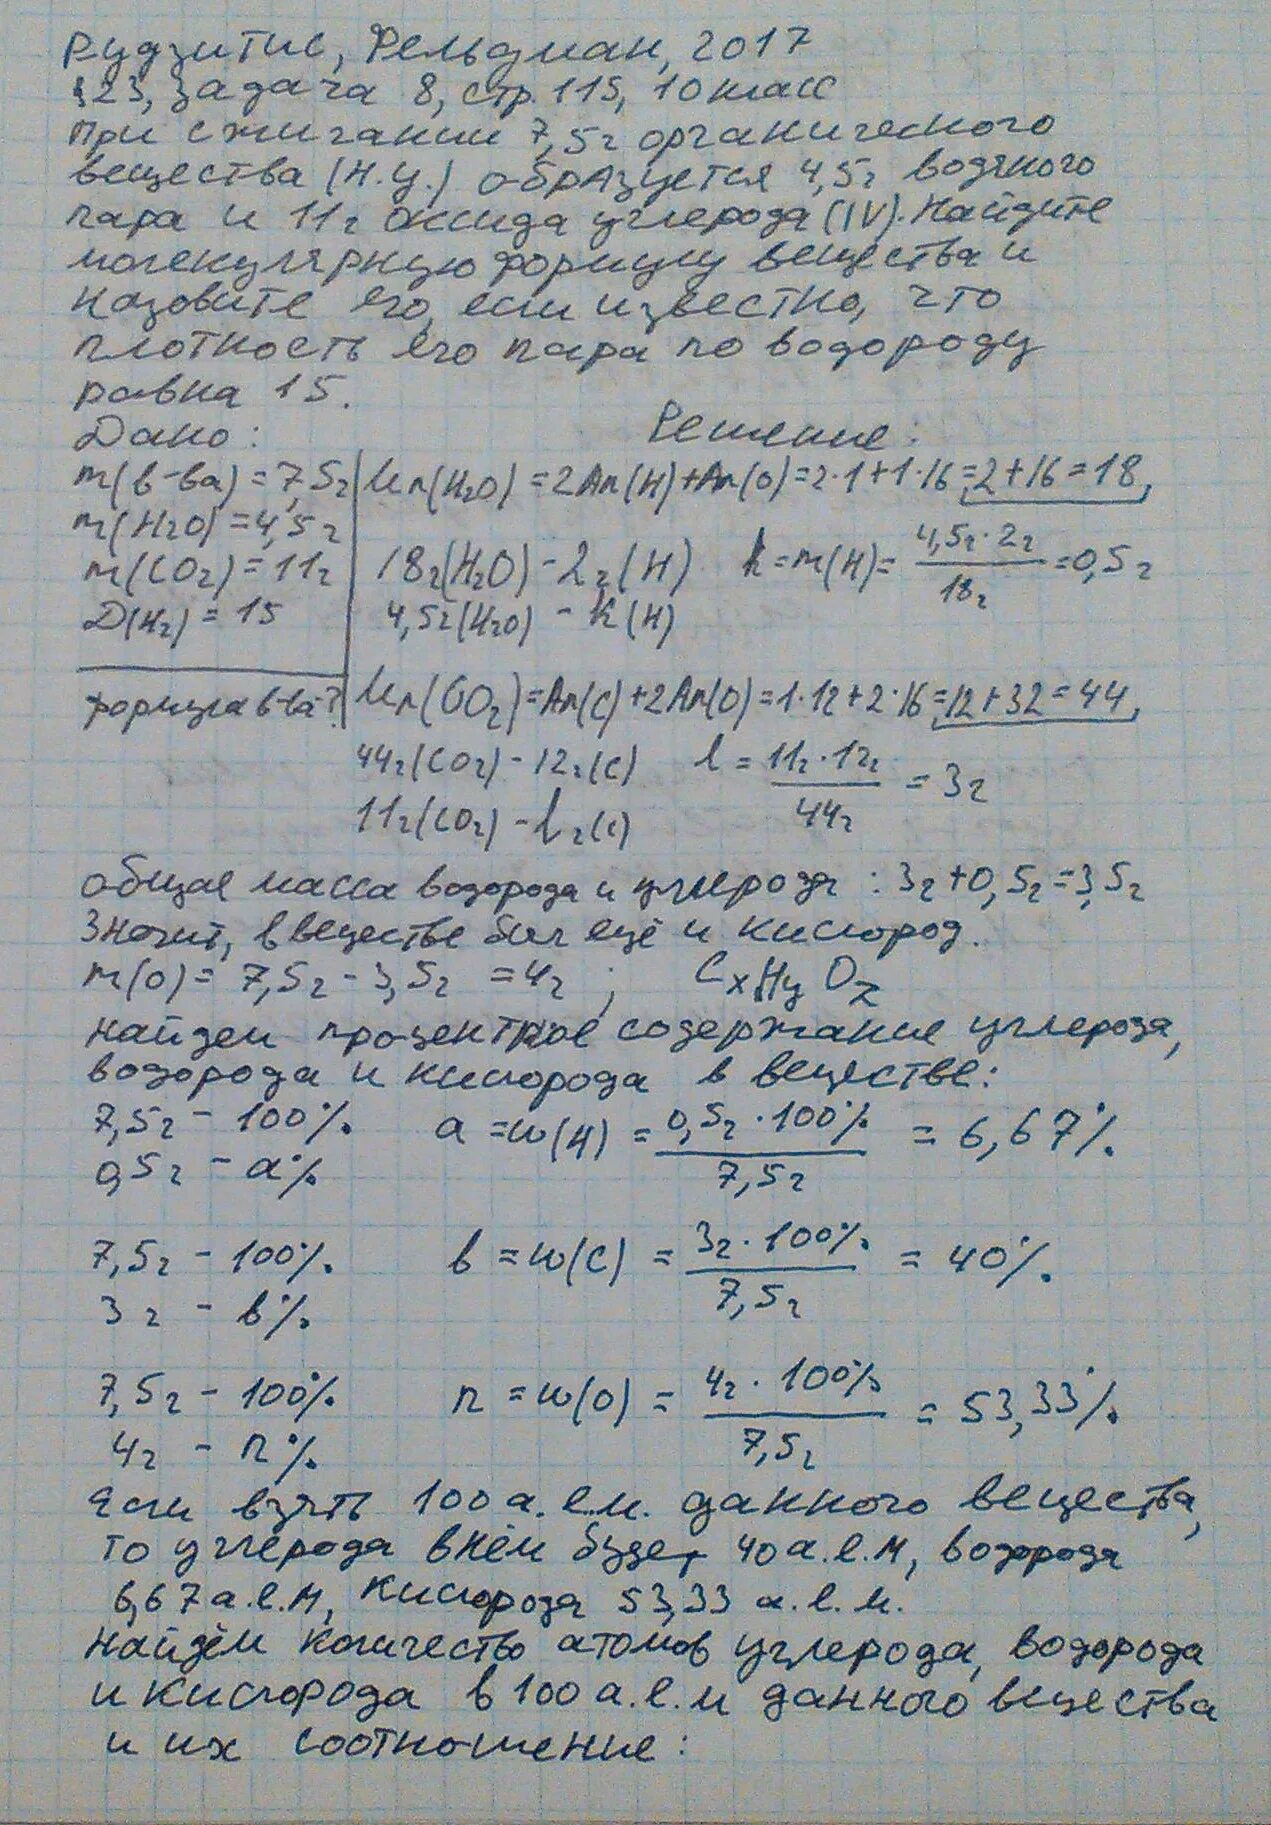 Рудзитис, Фельдман, 2017
§23, задача 8, стр. 115, 10 класс
При сжигании 7,5г органического
вещества (н.у.) образуется 4,5г водяного
пара и 11г оксида углерода (IV). Найдите
молекулярную формулу вещества и
назовите его, если известно, что
плотность его пара по водороду
равна 15.
Дано: Решение:
m(в-ва) = 7,5г Mr(H2O) = 2Ar(H)+Ar(O)=2·1+1·16=2+16=18,
m(H2O)=4,5г
m(CO2)=11г 18г(H2O) - 2г(H) k=m(H)= 4,5г·2г / 18г =0,5г
D(H2) = 15 4,5г(H2O) - k(H)
формула в-ва? Mr(CO2)=Ar(C)+2Ar(O)=1·12+2·16=12+32=44,
44г(CO2) - 12г(C) l = 11г·12г / 44г = 3г
11г(CO2) - l г(C)
общая масса водорода и углерода : 3г+0,5г=3,5г
Значит, в веществе был ещё и кислород.
m(O)= 7,5г - 3,5г = 4г ; CxHyOz
найдем процентное содержание углерода,
водорода и кислорода в веществе:
7,5г - 100% a =w(H) = 0,5г·100% / 7,5г = 6,67%
0,5г - a%
7,5г - 100% в = w(C) = 3г·100% / 7,5г = 40%
3г - в%
7,5г - 100% n = w(O) = 4г·100% / 7,5г = 53,33%
4г - n%
Если взять 100 а.е.м. данного вещества,
то углерода в нём будет 40 а.е.м, водорода
6,67 а.е.м, кислорода 53,33 а.е.м.
найдём количество атомов углерода, водорода
и кислорода в 100 а.е.м данного вещества
и их соотношение: